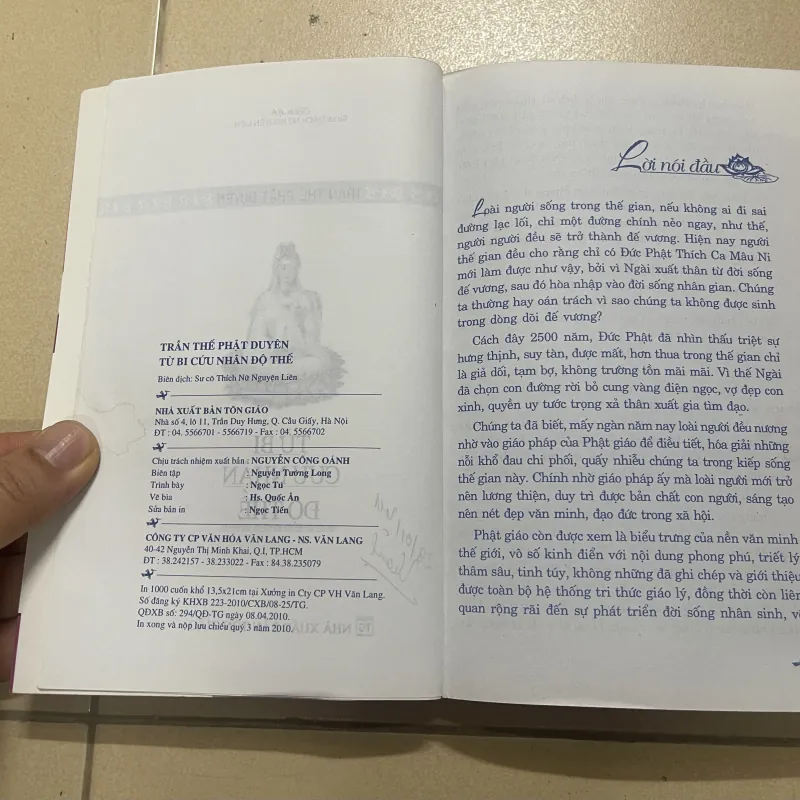 TRẦN THẾ PHẬT DUYÊN
TỪ BI CỨU NHÂN ĐỘ THẾ
Biên dịch: Sư cô Thích Nữ Nguyện Liên
NHÀ XUẤT BẢN TÔN GIÁO
Nhà số 4, lô 11, Trần Duy Hưng, Q. Cầu Giấy, Hà Nội
ĐT : 04. 5566701 - 5566719 - Fax : 04. 5566702
Chịu trách nhiệm xuất bản : NGUYỄN CÔNG OÁNH
Biên tập : Nguyễn Tường Long
Trình bày : Ngọc Tú
Vẽ bìa : Hs. Quốc Ân
Sửa bản in : Ngọc Tiến
CÔNG TY CP VĂN HÓA VĂN LANG - NS. VĂN LANG
40-42 Nguyễn Thị Minh Khai, Q.I, TP.HCM
ĐT : 38.242157 - 38.233022 - Fax : 84.38.235079
In 1000 cuốn khổ 13,5x21cm tại Xưởng in Cty CP VH Văn Lang.
Số đăng ký KHXB 223-2010/CXB/08-25/TG.
QĐXB số: 294/QĐ-TG ngày 08.04.2010.
In xong và nộp lưu chiểu quý 3 năm 2010.
Lời nói đầu
Loài người sống trong thế gian, nếu không ai đi sai
đường lạc lối, chỉ một đường chính nẻo ngay, như thế,
người người đều sẽ trở thành đế vương. Hiện nay người
thế gian đều cho rằng chỉ có Đức Phật Thích Ca Mâu Ni
mới làm được như vậy, bởi vì Ngài xuất thân từ đời sống
đế vương, sau đó hòa nhập vào đời sống nhân gian. Chúng
ta thường hay oán trách vì sao chúng ta không được sinh
trong dòng dõi đế vương?
Cách đây 2500 năm, Đức Phật đã nhìn thấu triệt sự
hưng thịnh, suy tàn, được mất, hơn thua trong thế gian chỉ
là giả dối, tạm bợ, không trường tồn mãi mãi. Vì thế Ngài
đã chọn con đường rời bỏ cung vàng điện ngọc, vợ đẹp con
xinh, quyền uy tước trọng xả thân xuất gia tìm đạo.
Chúng ta đã biết, mấy ngàn năm nay loài người đều nương
nhờ vào giáo pháp của Phật giáo để điều tiết, hóa giải những
nỗi khổ đau chi phối, quấy nhiễu chúng ta trong kiếp sống
thế gian này. Chính nhờ giáo pháp ấy mà loài người mới trở
nên lương thiện, duy trì được bản chất con người, sáng tạo
nên nét đẹp văn minh, đạo đức trong xã hội.
Phật giáo còn được xem là biểu trưng của nền văn minh
thế giới, vô số kinh điển với nội dung phong phú, triết lý
thâm sâu, tinh túy, không những đã ghi chép và giới thiệu
được toàn bộ hệ thống tri thức giáo lý, đồng thời còn liên
quan rộng rãi đến sự phát triển đời sống nhân sinh, v